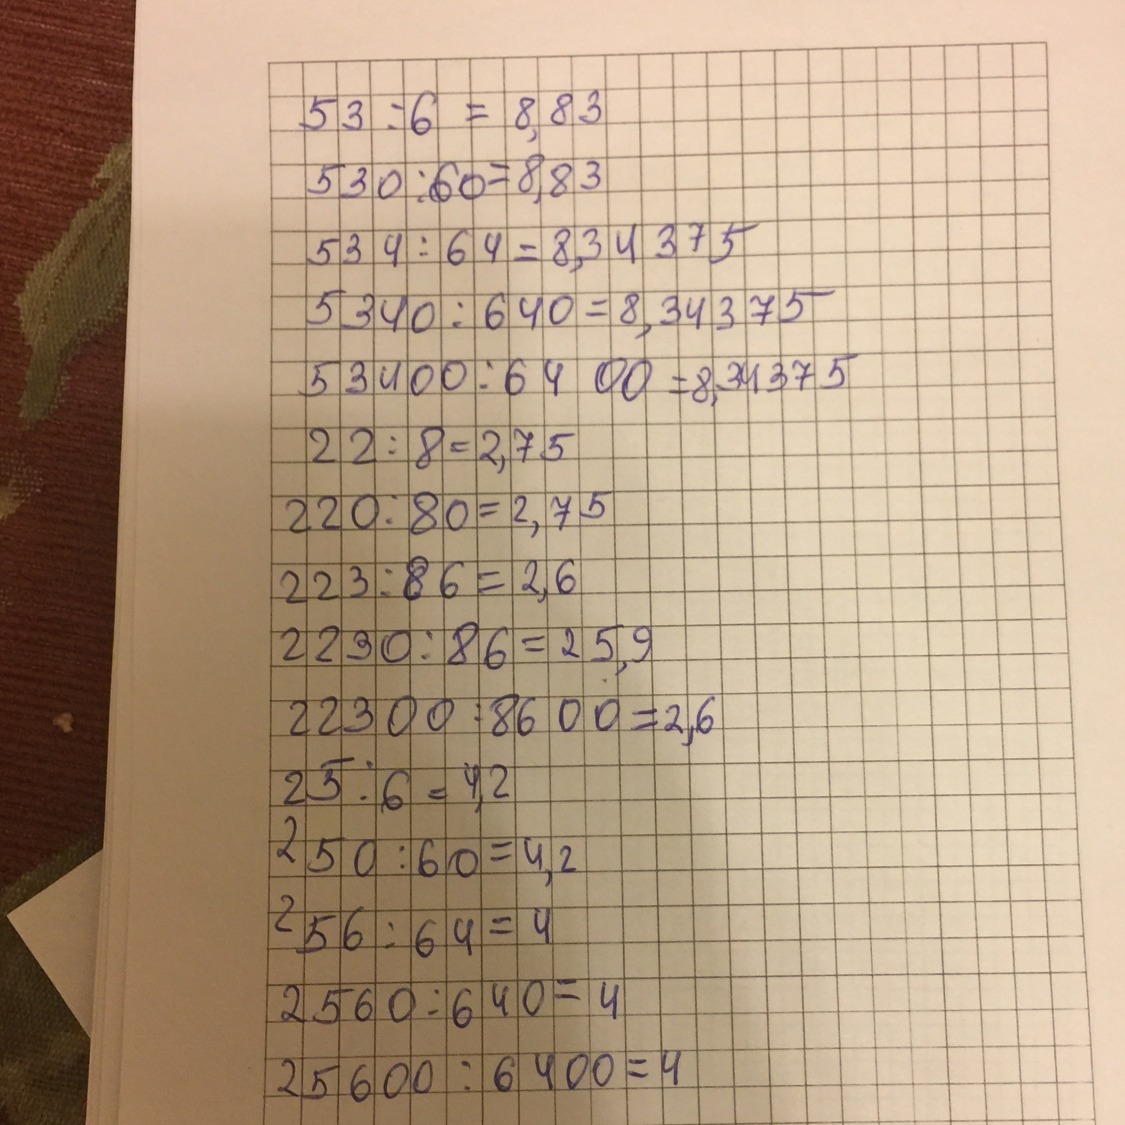 53 : 6 = 8,83
530 : 60 = 8,83
534 : 64 = 8,34375
5340 : 640 = 8,34375
53400 : 6400 = 8,34375
22 : 8 = 2,75
220 : 80 = 2,75
223 : 86 = 2,6
2230 : 86 = 25,9
22300 : 8600 = 2,6
25 : 6 = 4,2
250 : 60 = 4,2
256 : 64 = 4
2560 : 640 = 4
25600 : 6400 = 4